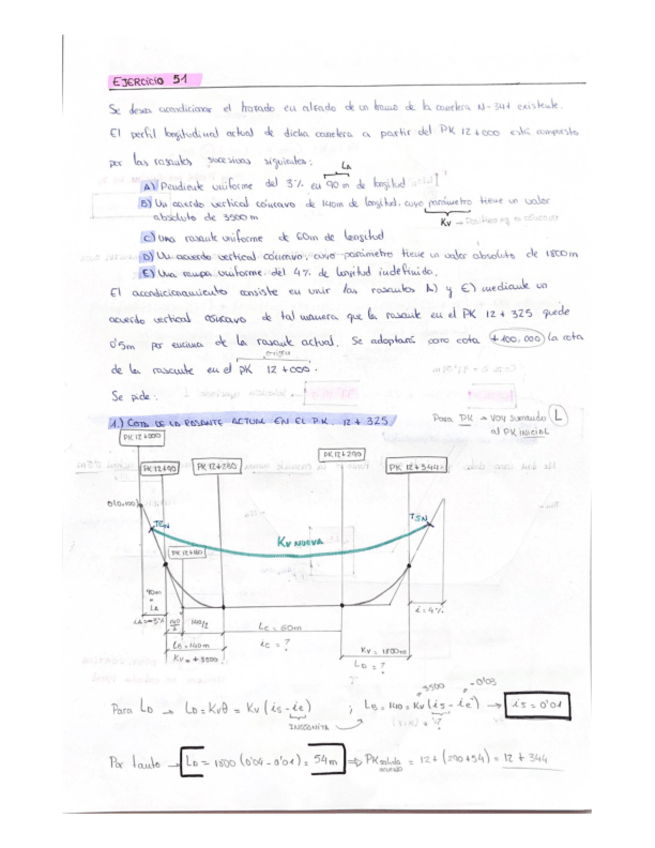 EJERCICIO 51
Se desea acondicionar el trazado en alzado de un tramo de la carretera N-341 existente.
El perfil longitudinal actual de dicha carretera a partir del PK 12+000 está compuesto
por las rasantes sucesivas siguientes:
LA
A) Pendiente uniforme del 3% en 90 m de longitud
B) Un acuerdo vertical cóncavo de 140m de longitud, cuyo parámetro tiene un valor
absoluto de 3500 m
Kv → Positivo
C) Una rasante uniforme de 60m de longitud
D) Un acuerdo vertical cóncavo, cuyo parámetro tiene un valor absoluto de 1800m
E) Una rampa uniforme del 4% de longitud indefinida.
El acondicionamiento consiste en unir las rasantes A) y E) mediante un
acuerdo vertical cóncavo de tal manera que la rasante en el PK 12 + 325 quede
0'5m por encima de la rasante actual. Se adoptará como cota +100,000 la cota
origen
de la rasante en el PK 12+000.
Se pide:
1.) COTA DE LA RASANTE ACTUAL EN EL P.K. 12+325
Para PK → voy sumando L
al PK inicial
PK 12+000
PK 12+90
PK 12+230
PK 12+290
PK 12+344
TEN
TSN
Kv NUEVA
90m
=
LA
140/2
LC = 60m
i = 4%
LB = 140m
iC = ?
Kv = 1800m
Kv = + 3500
LD = ?
Para LD → LD = Kvθ = Kv (is - ie) ; LB = 140 = Kv (is - ie) → is = 0'01
3500
-0'03
INCÓGNITA
Por tanto → LD = 1800 (0'04 - 0'01) = 54m ⇒ PK salida acuerdo = 12 + (290+54) = 12 + 344